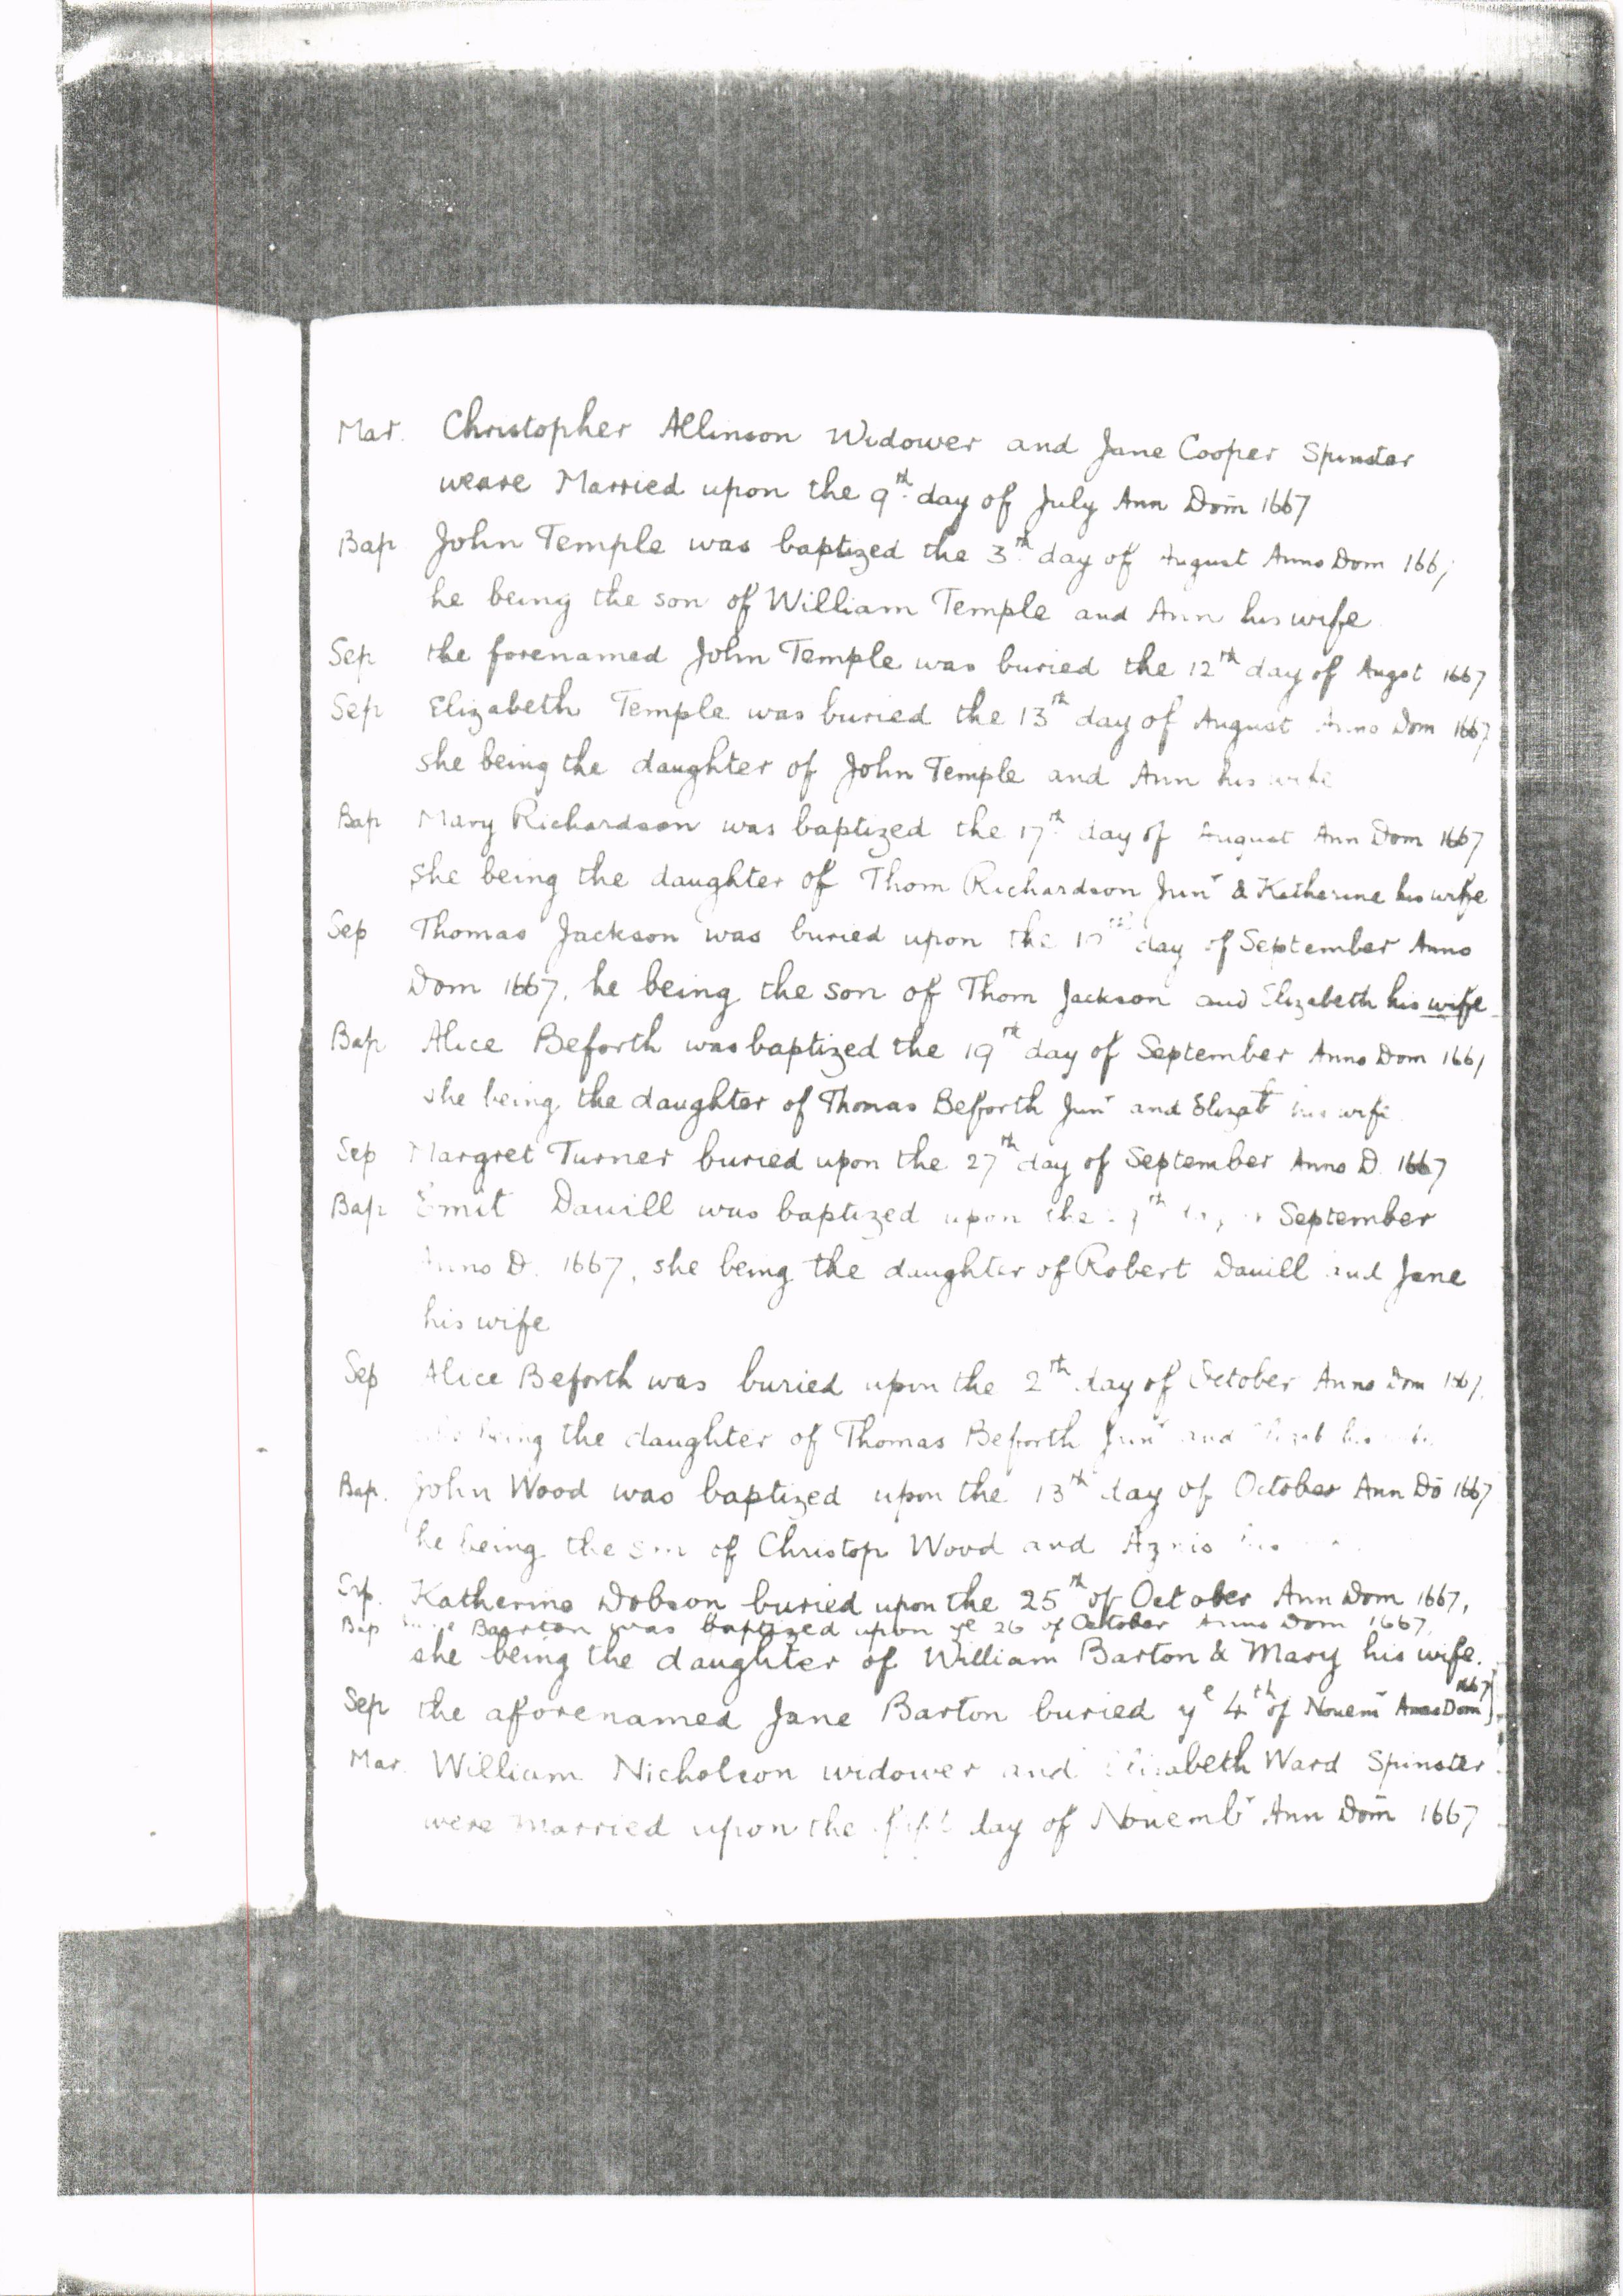 Mar. Christopher Allinson Widower and Jane Cooper Spinster
weare Married upon the 9th day of July Ann Dom 1667
Bap John Temple was baptized the 3th day of August Anno Dom 1667
he being the son of William Temple and Ann his wife
Sep the forenamed John Temple was buried the 12th day of Augst 1667
Sep Elizabeth Temple was buried the 13th day of August Anno Dom 1667
she being the daughter of John Temple and Ann his wife
Bap Mary Richardson was baptized the 17th day of August Ann Dom 1667
she being the daughter of Thom Richardson Junr & Katherine his wife
Sep Thomas Jackson was buried upon the day of September Anno
Dom 1667, he being the son of Thom Jackson and Elizabeth his wife
Bap Alice Beforth was baptized the 19th day of September Anno Dom 1667
she being the daughter of Thomas Beforth Junr and Elizabt his wife
Sep Margret Turner buried upon the 27th day of September Anno D. 1667
Bap Emit Dauill was baptized upon the September
Anno D. 1667, she being the daughter of Robert Dauill and Jane
his wife
Sep Alice Beforth was buried upon the 2th day of October Anno Dom 1667,
she being the daughter of Thomas Beforth Junr and Elizab his wife
Bap. John Wood was baptized upon the 13th day of October Ann Dō 1667
he being the son of Christop Wood and his
Sep. Katherine Dobson buried upon the 25th of October Ann Dom 1667,
Bap Barton was baptized upon ye 26 of October Anno Dom 1667,
she being the daughter of William Barton & Mary his wife.
Sep the aforenamed Jane Barton buried ye 4th of Nouem Anno Dom 1667
Mar. William Nicholson widower and Elizabeth Ward Spinster
were married upon the fift day of Nouembr Ann Dom 1667